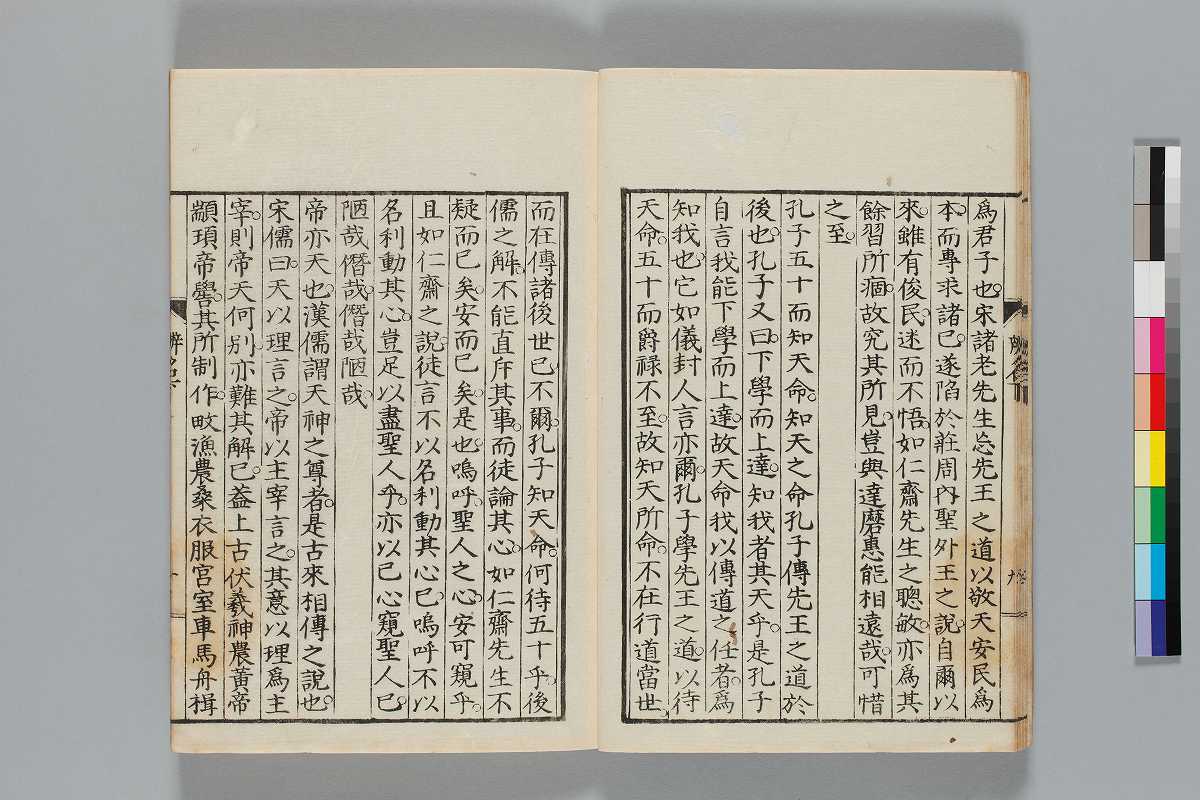 爲君子也。宋諸老先生忘先王之道以敬天安民爲
本。而專求諸己。遂陷於莊周內聖外王之說。自爾以
來。雖有俊民。迷而不悟。如仁齋先生之聰敏。亦爲其
餘習所痼。故究其所見。豈與達磨惠能相遠哉。可惜
之至。
孔子五十而知天命。知天之命孔子傳先王之道於
後也。孔子又曰。下學而上達。知我者其天乎。是孔子
自言我能下學而上達。故天命我以傳道之任者。爲
知我也。它如儀封人言亦爾。孔子學先王之道。以待
天命。五十而爵祿不至。故知天所命。不在行道當世。
而在傳諸後世已不爾。孔子知天命。何待五十乎。後
儒之解。不能直斥其事。而徒論其心。如仁齋先生不
疑而已矣。安而已矣。是也。嗚呼。聖人之心。安可窺乎。
且如仁齋之說。徒言不以名利動其心已。嗚呼不以
名利動其心。豈足以盡聖人乎。亦以己心窺聖人已。
陋哉僭哉。僭哉陋哉。
帝亦天也。漢儒謂天神之尊者。是古來相傳之說也。
宋儒曰。天以理言之。帝以主宰言之。其意以理爲主
宰。則帝天何別。亦難其解已。蓋上古伏羲神農黃帝
顓頊帝嚳。其所制作。畋漁農桑衣服宮室車馬舟楫
辨名